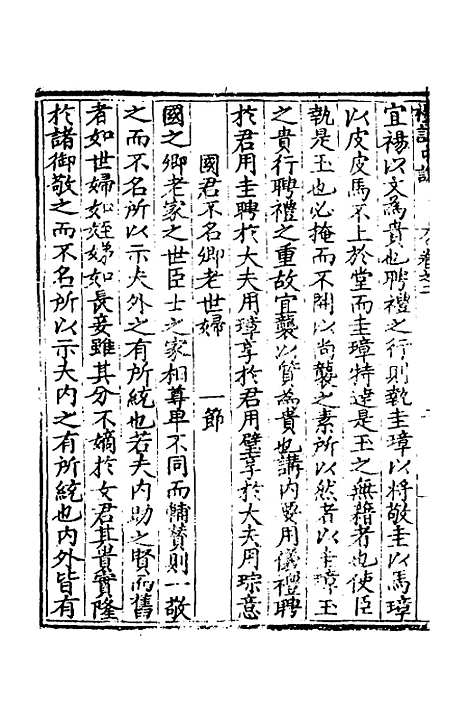 禮記中說 卷之二
宜裼以文為貴也聘禮之行則執圭璋以將敬圭以馬璋
以皮皮馬不上於堂而圭璋特達是玉之無藉者也使臣
執是玉也必掩而不開以尚襲之素所以然者以圭璋玉
之貴行聘禮之重故宜襲以質為貴也講內要用儀禮聘
於君用圭聘於大夫用璋享於君用璧享於大夫用琮意
國君不名卿老世婦 一節
國之卿老家之世臣士之家相尊卑不同而輔賛則一敬
之而不名所以示夫外之有所統也若夫內助之賢而舊
者如世婦如姪娣如長妾雖其分不嫡於女君其貴實隆
於諸御敬之而不名所以示夫內之有所統也內外皆有